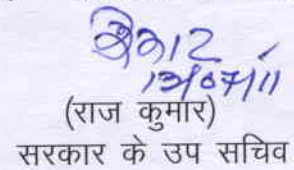 13/07/11
(राज कुमार)
सरकार के उप सचिव